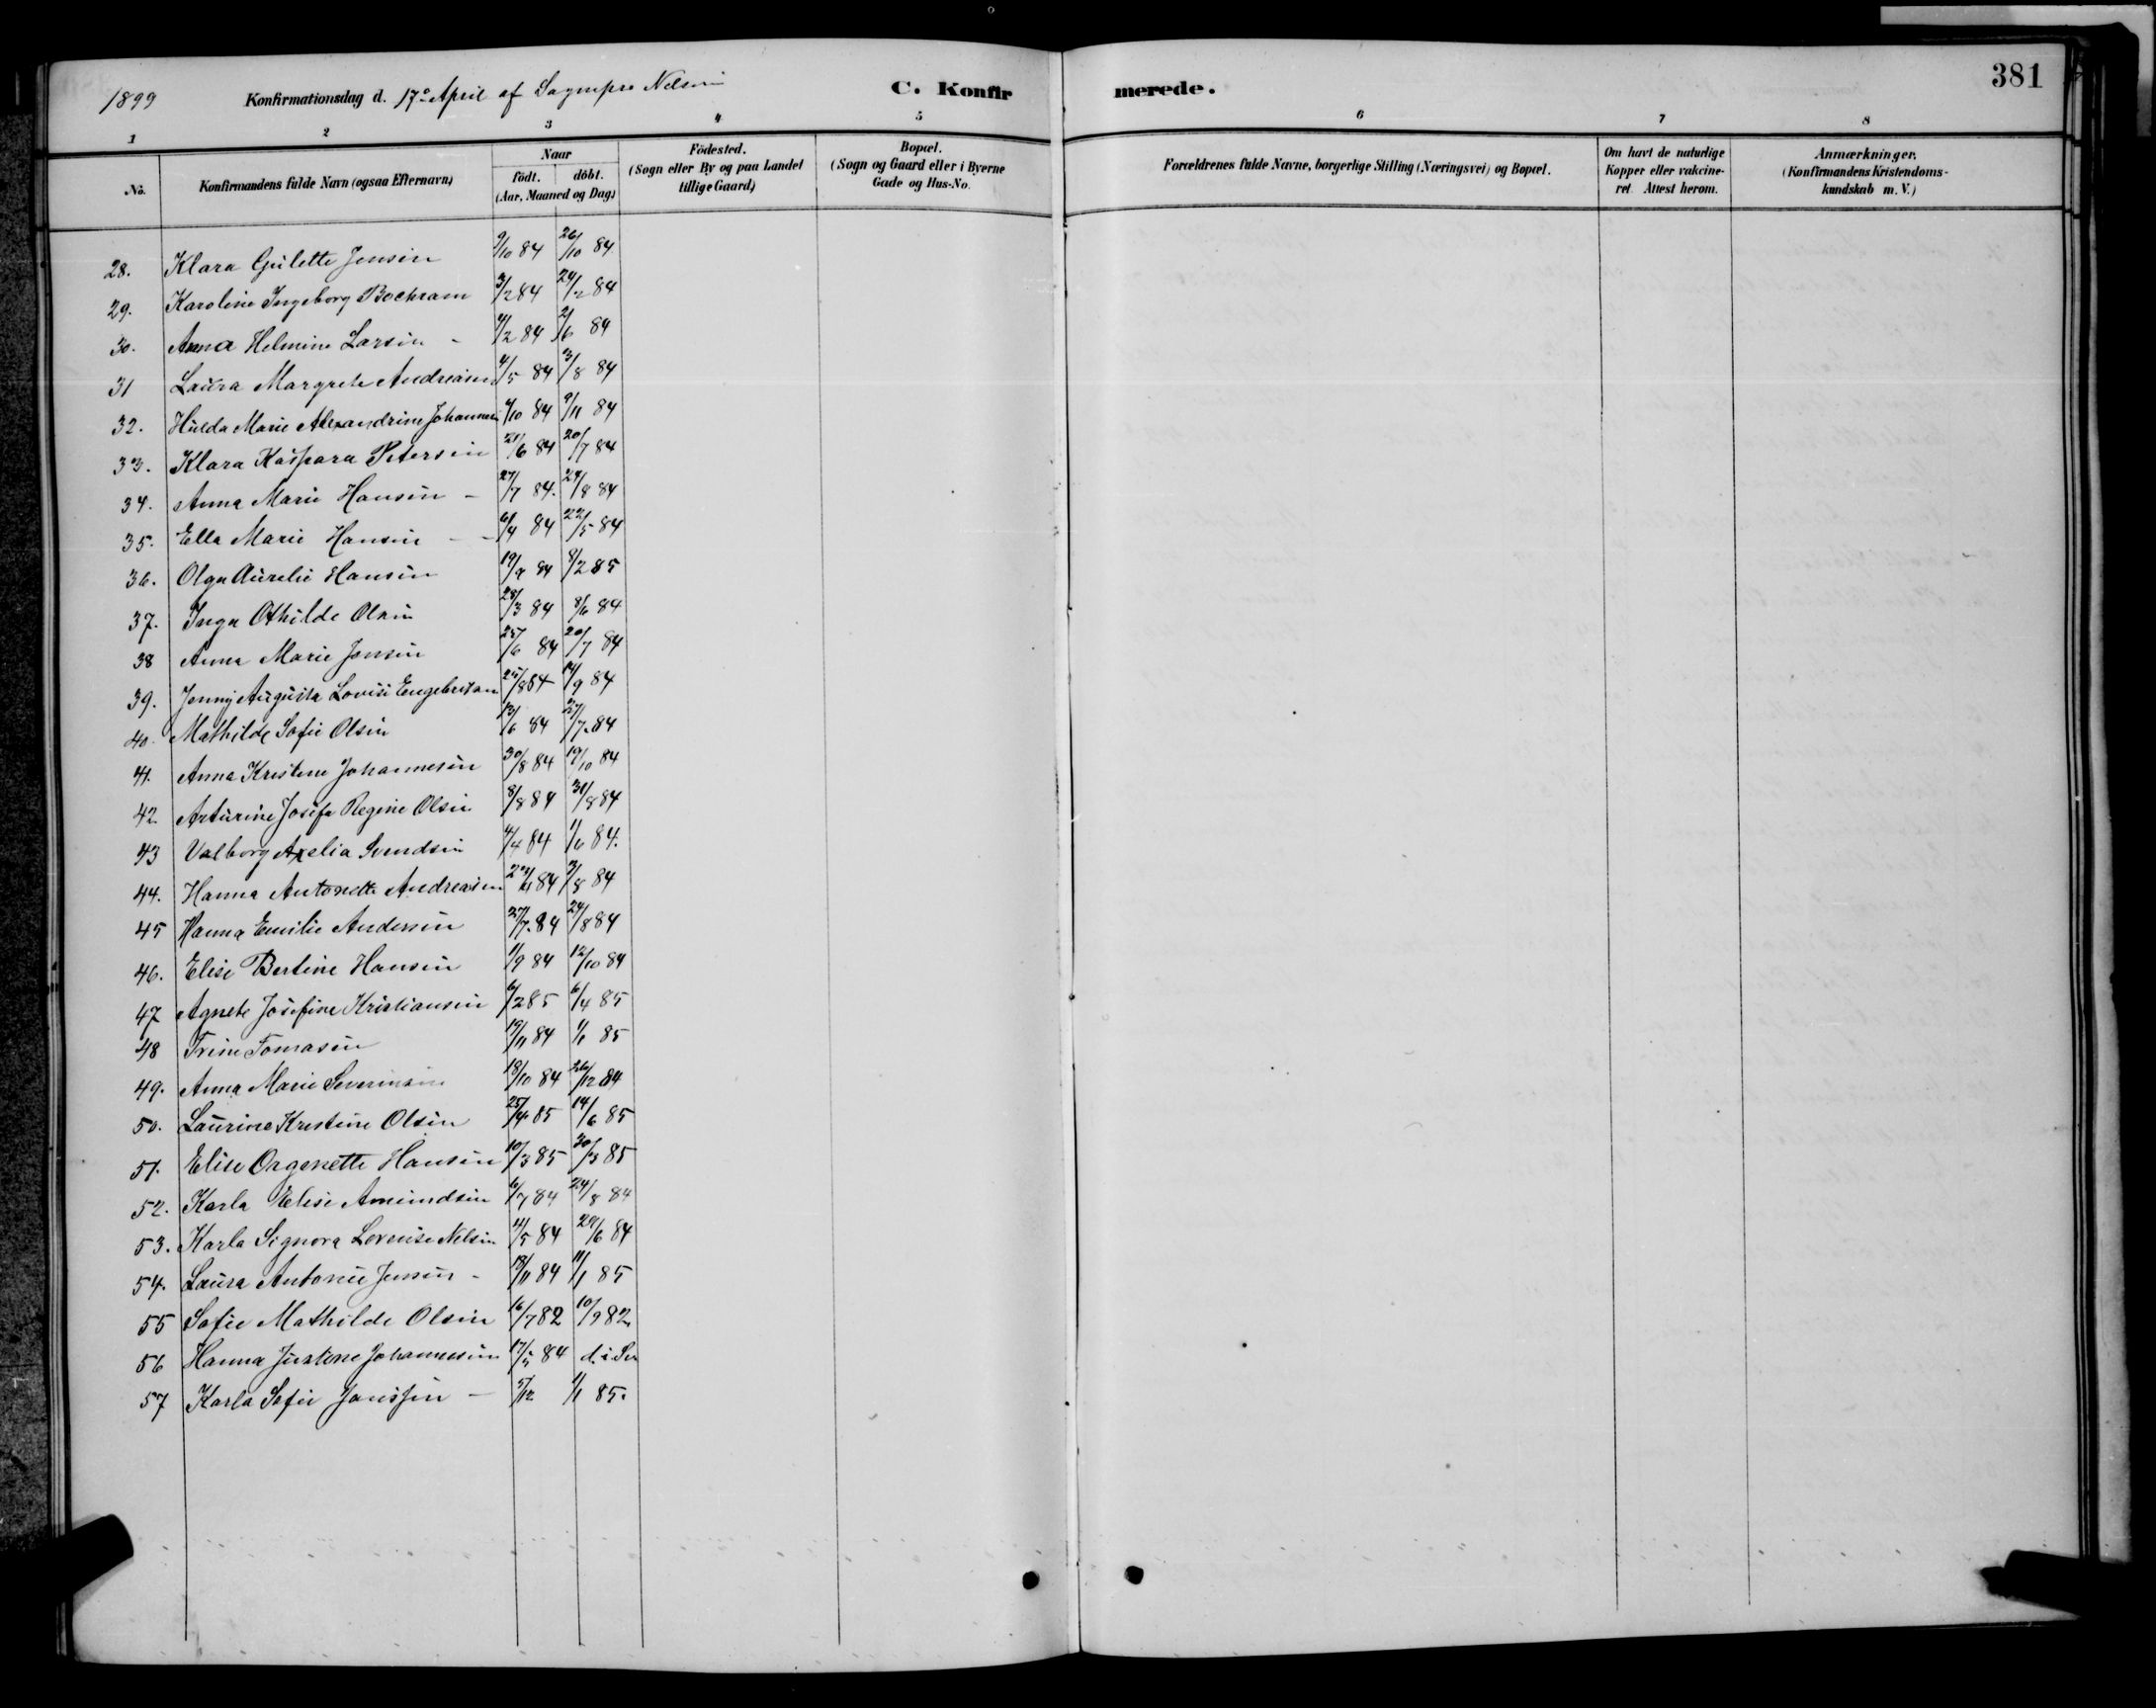 381
1899 Konfirmationsdag d. 17de April af Sogneprs Nelson C. Konfirmerede.
1 2 3 4 5 6 7 8
No. Konfirmandens fulde Navn (ogsaa Efternavn) Naar födt. döbt. (Aar, Maaned og Dag) Födested. (Sogn eller By og paa Landet tillige Gaard) Bopæl. (Sogn og Gaard eller i Byerne Gade og Hus-No. Forældrenes fulde Navne, borgerlige Stilling (Næringsvei) og Bopæl. Om havt de naturlige Kopper eller vakcineret. Attest herom. Anmærkninger. (Konfirmandens Kristendomskundskab m. V.)
28. Klara Gulette Jensen 9/10 84 26/10 84
29. Karoline Ingeborg Bockram 3/2 84 24/2 84
30. Anna Helmine Larsen - 4/2 84 2/6 84
31 Laura Margrete Andreasen 4/5 84 3/8 84
32. Hulda Marie Alexandrine Johannesen 4/10 84 9/11 84
33. Klara Kaspara Petersen 21/6 84 20/7 84
34. Anna Marie Hansen - 27/7 84. 24/8 84
35. Ella Marie Hansen - - 6/4 84 22/5 84
36. Olga Aurelie Hansen 19/9 84 8/2 85
37. Inga Othilde Olsen 28/3 84 8/6 84
38 Anna Marie Jensen 25/6 84 20/7 84
39. Jenny Augusta Lovise Engebretsen 25/8 84 14/9 84
40. Mathilde Sofie Olsen 13/6 84 27/7 84
41. Anna Kristine Johannesen 30/8 84 19/10 84
42. Arturine Josefa Regine Olsen 8/8 84 31/8 84
43 Valborg Axelia Svendsen 4/4 84 1/6 84.
44. Hanna Antonette Andreasen 84 3/8 84
45 Hanna Emilie Andersen 27/7 84 24/8 84
46. Elise Bertine Hansen 1/9 84 12/10 84
47 Agnete Josefine Kristiansen 6/2 85 6/4 85
48 Trine Tomasen 19/11 84 1/1 85
49. Anna Marie Severinsen 18/10 84 26/12 84
50. Laurine Kristine Olsen 25/4 85 14/6 85
51. Elise Oagenette Hansen 10/3 85 30/3 85
52. Karla Elise Amundsen 6/7 84 24/8 84
53. Karla Signora Lovise Nelsen 11/5 84 29/6 84
54. Laura Antonie Jensen - 13/11 84 11/1 85
55 Sofie Mathilde Olsen 16/7 82 10/9 82
56 Hanna Justine Johannesen 17/5 84 d. i
57 Karla Sofie Janssen - 5/12 1/1 85.